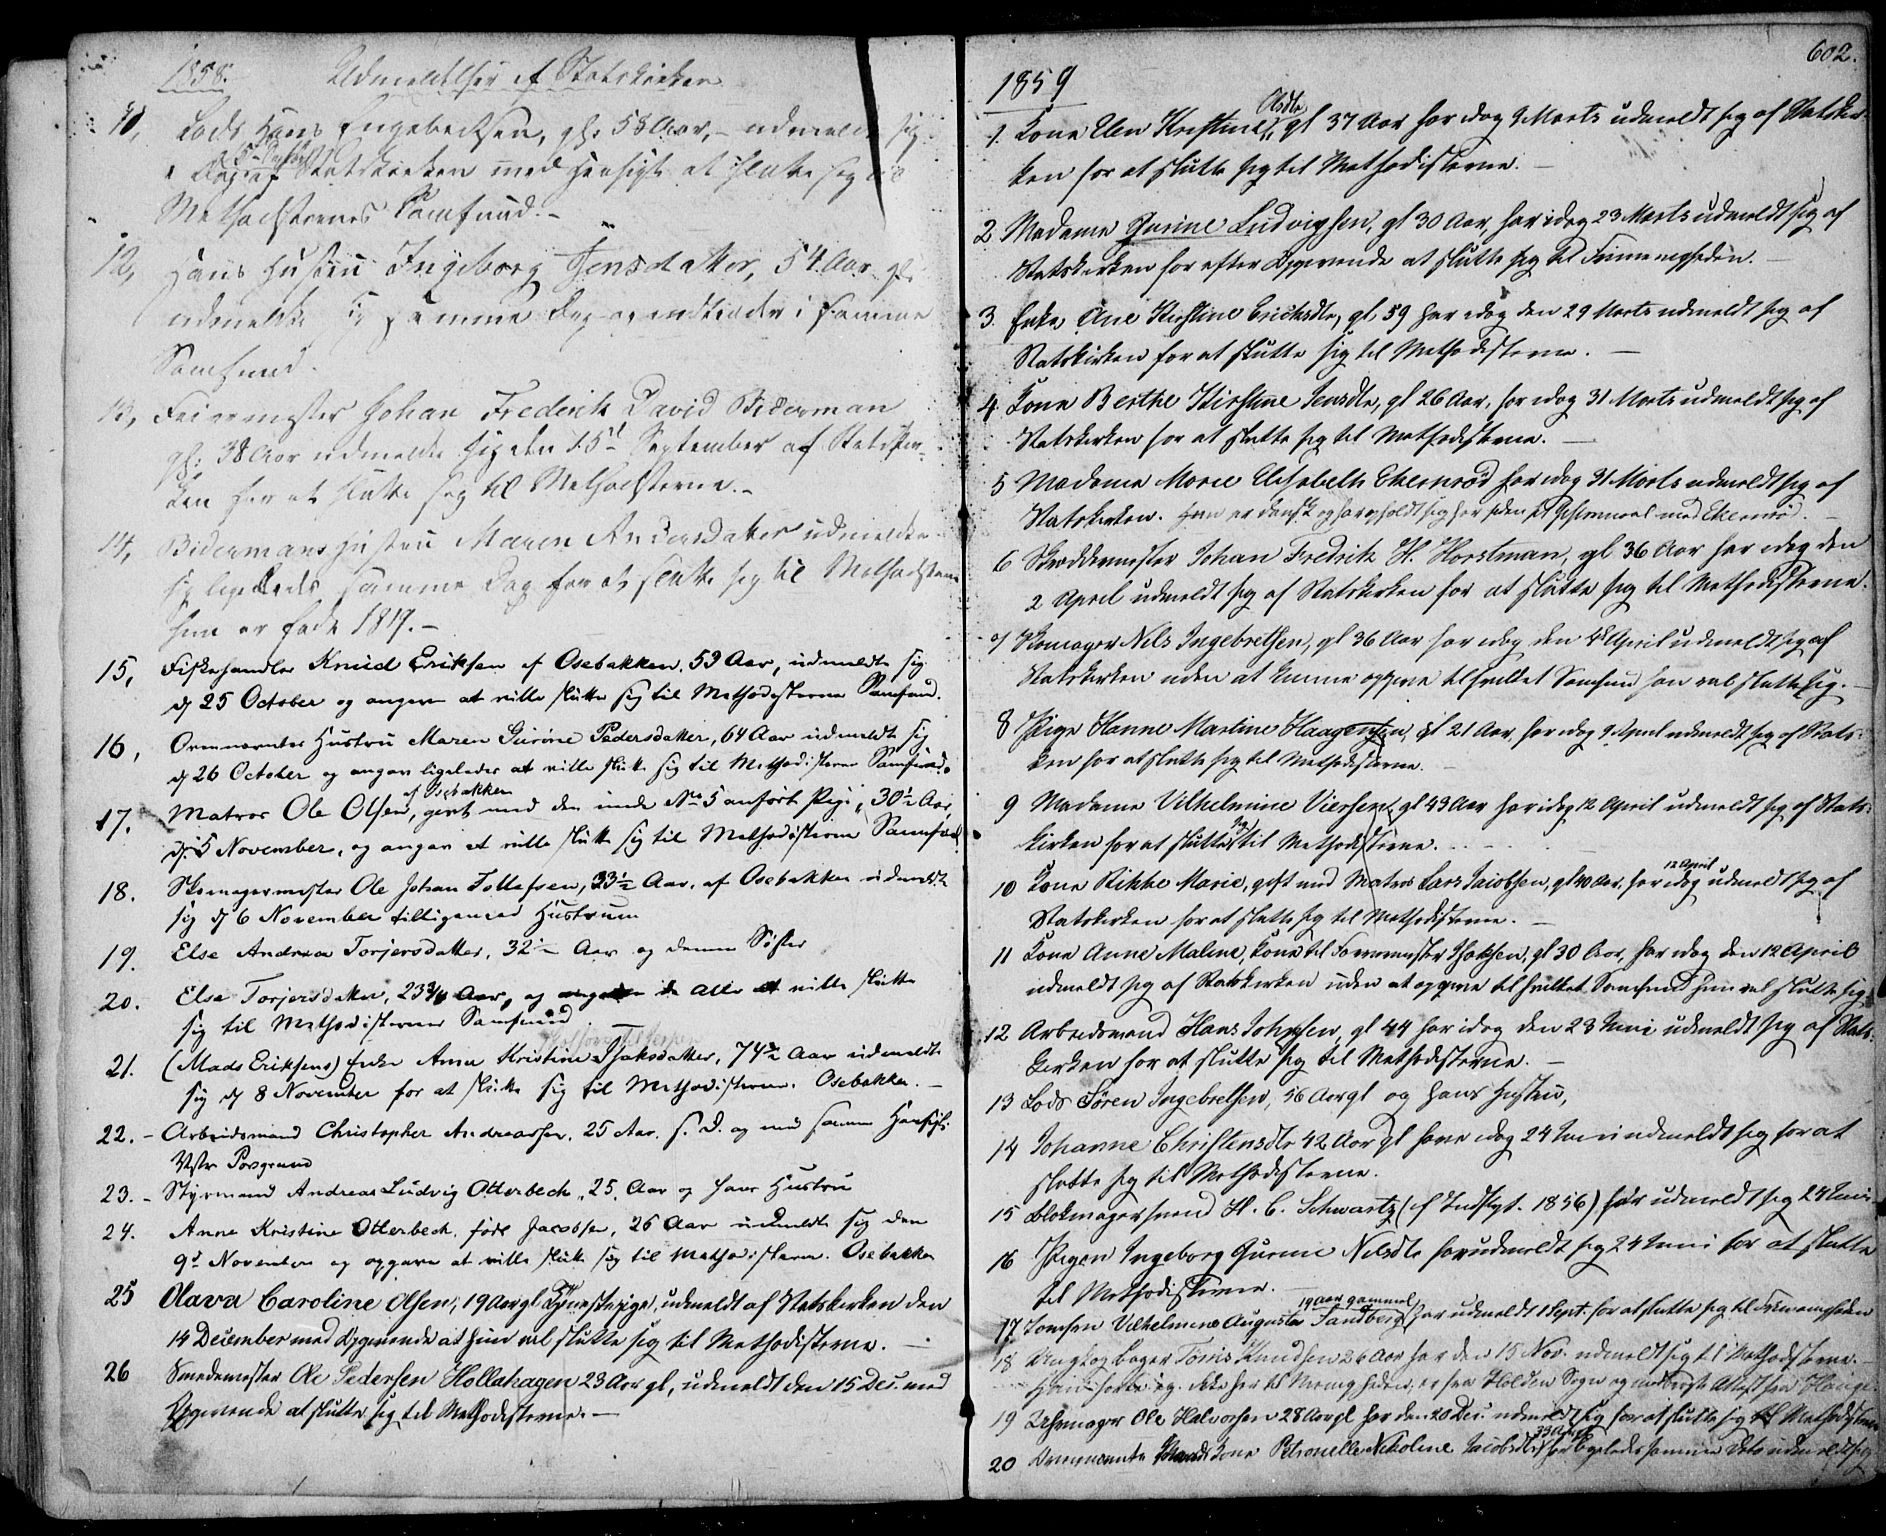 1858. Udmeldelser af Statskirken
11, Lods Hans Engebretsen, gl: 58 Aar, – udmeldte sig
Dag af Statskirken med Hensigt at slutte sig til
Methodisternes Samfund. –
12, Hans Hustru Ingeborg Jensdatter, 54 Aar gl:
udmeldte sig samme Dag og indtræder i samme
Samfund.
13, Feiermester Johan Frederik David Biderman
gl: 38 Aar udmeldte sig den 15d September af Statskir-
ken for at slutte sig til Methodisterne. –
14, Bidermans Hustru Maren Andersdatter udmeldte
sig ligeledes samme Dag for at slutte sig til Methodisterne
hun er født 1819. –
15, Fiskehandler Knud Eriksen af Osebakken, 53 Aar, udmeldte sig
d 25 October og angav at ville slutte sig til Methodisternes Samfund.
16, Ovennævntes Hustru Maren Gurine Pedersdatter, 64 Aar udmeldte sig
d 26 October og angav ligeledes at ville slutte sig til Methodisternes Samfund.
af Osebakken
17. Matros Ole Olsen, givt med den under No 5 anførte Pige, 30½ Aar
d. 5 November, og angav at ville slutte sig til Methodisternes Samfund
18. Skomagermester Ole Johan Tollefsen, 33½ Aar, af Osebakken udmeldte
sig d 6 November tilligemed Hustruen
19. Else Andrea Torjersdatter, 32½ Aar og dennes Søster
20. Else Torjersdatter, 23¾ Aar, og alle at ville slutte
sig til Methodisternes Samfund
21. (Mads Eriksens) Enke Anne Kristine Isaksdatter, 74½ Aar udmeldte
sig d 8 November for at slutte sig til Methodisterne. Osebakken. –
22. – Arbeidsmand Christopher Andreassen, 25 Aar. s. D. og med samme Hensigt.
Vstr Porsgrund
23. – Styrmand Andreas Ludvig Otterbech, 25 Aar og hans Hustru
24. Anne Kristine Otterbech, født Jacobsen, 26 Aar udmeldte sig den
9d November og opgave at ville slutte sig til Methodisterne. Osebakken
25 Olava Caroline Olsen, 19 Aar gl Tjenestepige, udmeldt af Statskirken den
14 December med Opgivende at hun vil slutte sig til Methodisterne. –
26 Smedemester Ole Pedersen Hollahagen 23 Aar gl, udmeldt den 15 Dec. med
Opgivende at slutte sig til Methodisterne. –
602.
1859
Olsdtr
1. Kone Elen Kirstine, gl 37 Aar har idag 9 Marts udmeldt sig af Statskir-
ken for at slutte sig til Methodisterne. –
2 Madame Gurine Ludvigsen, gl 30 Aar, har idag 23 Marts udmeldt sig af
Statskirken for efter Opgivende at slutte sig til Frimenigheden. –
3. Enke Ane Kirstine Ericksdtr, gl 59 har idag den 29 Marts udmeldt sig af
Statskirken for at slutte sig til Methodisterne. –
4 Kone Berthe Kirstine Jensdtr, gl 26 Aar, har idag 31 Marts udmeldt sig af
Statskirken for at slutte sig til Methodisterne. –
5 Madame Marie Elisabeth Ekernröd har idag 31 Marts udmeldt sig af
Statskirken. Hun er dansk og har opholdt sig her siden sit Giftermaal med Ekernröd. –
6 Skræddermester Johan Fredrik H. Horstman, gl 36 Aar har idag den
2 April udmeldt sig af Statskirken for at slutte sig til Methodisterne.
7 Skomager Nils Ingebretsen, gl 36 Aar har idag den 4de April udmeldt sig af
Statskirken uden at kunne opgive til hvilket Samfund han vil slutte sig. –
8 Pige Hanne Martine Haagensen, gl 21 Aar, har idag 9 April udmeldt sig af Statskir-
ken for at slutte sig til Methodisterne.
9 Madame Vilhelmine Viersen, gl 43 Aar har idag 12 April udmeldt sig af Stats-
kirken for at slutte sig til Methodisterne.
12 April
10 Kone Rikke Marie, gift med Matros Lars Jacobsen, gl 40 Aar, har idag udmeldt sig af
Statskirken for at slutte sig til Methodisterne. –
11 Kone Anne Maline, Kone til Isaksen, gl 30 Aar, har idag den 12 April
udmeldt sig af Statskirken uden at opgive til hvilket Samfund hun vil slutte sig.
12 Arbeidsmand Hans Johnsen, gl 44 har idag den 23 Juni udmeldt sig af Stats-
kirken for at slutte sig til Methodisterne. –
13 Lods Sören Ingebretsen, 56 Aar gl og hans Hustru,
14 Johanne Christensdtr 42 Aar gl have idag 24 Juni udmeldt sig for at
slutte sig til Methodisterne.
15 Blokmagersvend H. C. Schwartz (cf Indflyt. 1856) har udmeldt sig 24 Juni
16 Pigen Ingeborg Gurine Nilsdtr har udmeldt sig 24 Juni for at slutte
til Methodisterne.
19 Aar gammel
17 Jomfru Vilhelmine Augusta Sandberg har udmeldt 1 Sept. for at slutte sig til Frimenigheden
18 Ungkog Bager Tönis Knudsen 26 Aar har den 15 Nov. udmeldt sig til Methodisterne. –
Han hører ikke her til Menigheden, er fra Holden Sogn og
19 Uhrmager Ole Halvorsen 28 Aar gl har den 20 Dec. udmeldt sig for at slutte sig til Methodisterne
33 Aar
20 Ovennævnte Kone Petronelle Nikoline Jacobsdtr har ligeledes samme Dato udmeldt sig